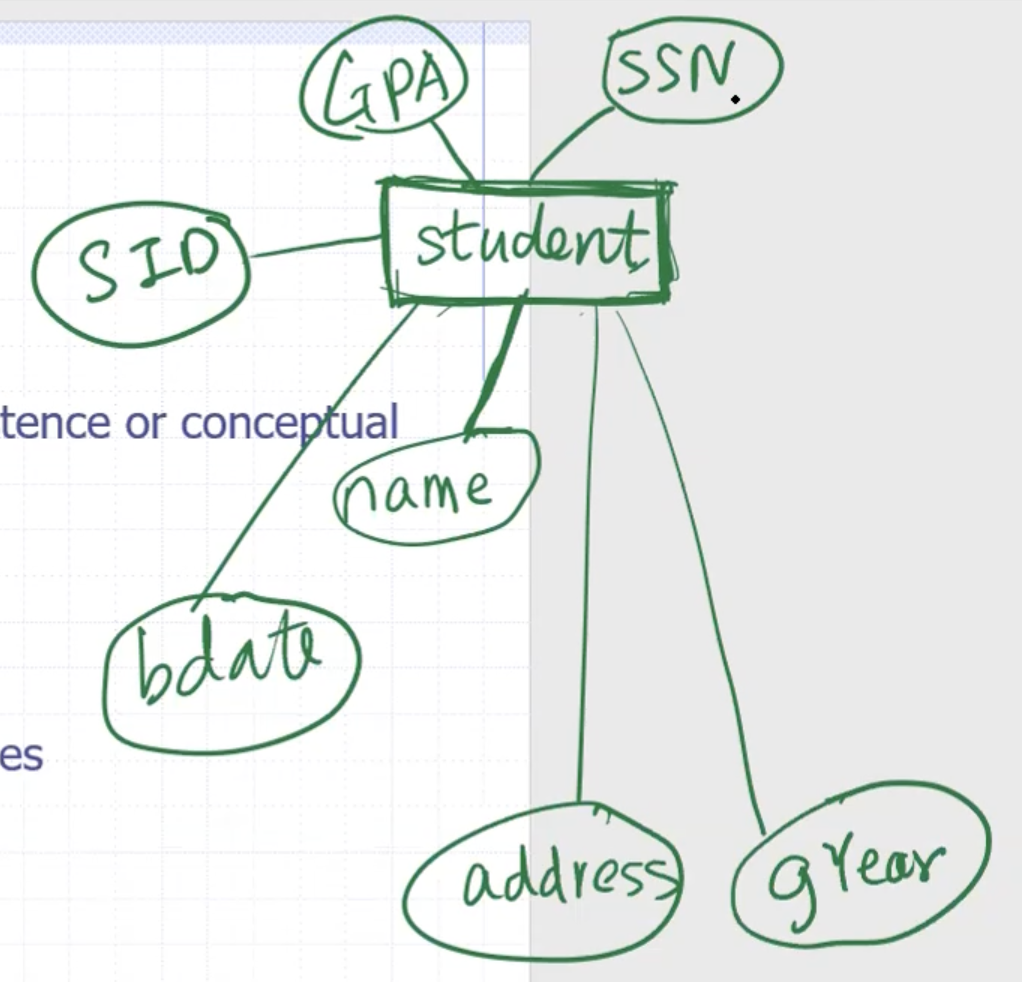 GPA
SSN
SID
student
tence or conceptual
name
bdate
es
address
gYear